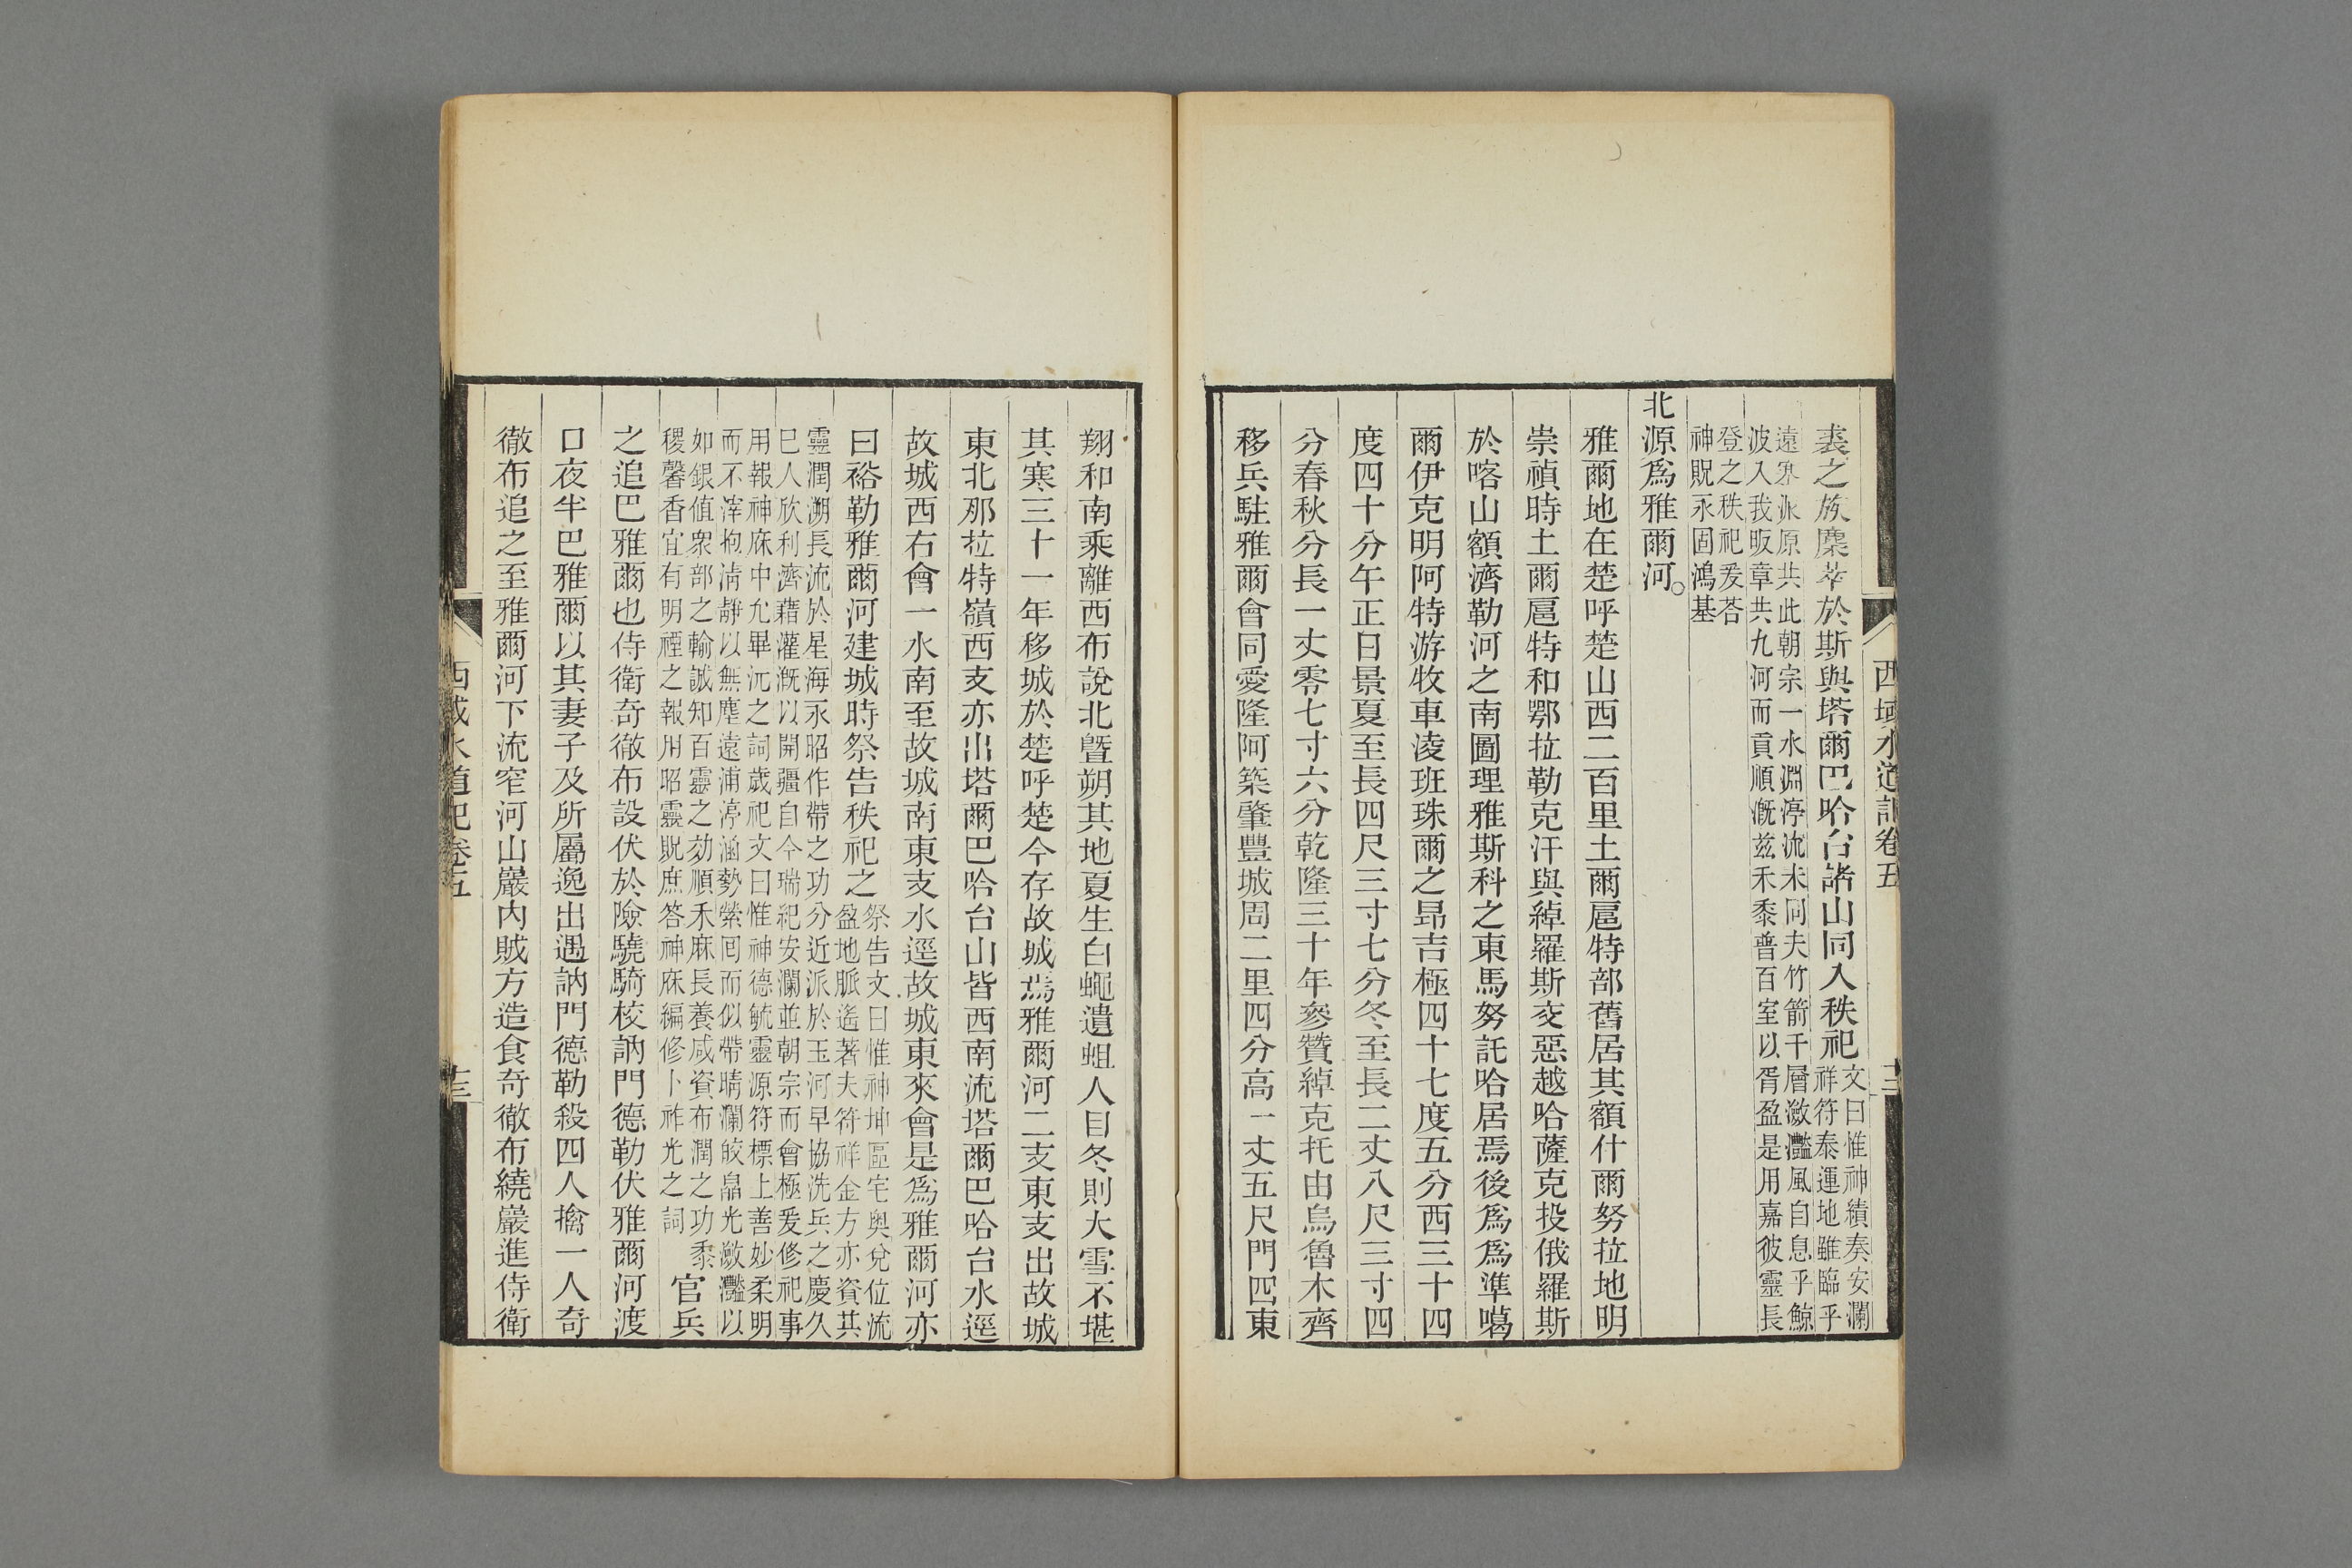 西域水道記卷五
十二
裘之族麇萃於斯與塔爾巴哈台諸山同入秩祀文曰惟神績奏安瀾
祥符泰運地雖臨乎
遠界派原共此朝宗一水淵渟流未同夫竹箭千層瀲灩風自息乎鯨
波入我版章共九河而貢順漑茲禾黍普百室以胥盈是用嘉彼靈長
登之秩祀爰荅
神貺永固鴻基
北源爲雅爾河。
雅爾地在楚呼楚山西二百里土爾扈特部舊居其額什爾努拉地明
崇禎時土爾扈特和鄂拉勒克汗與綽羅斯交惡越哈薩克投俄羅斯
於喀山額濟勒河之南圖理雅斯科之東馬努託哈居焉後爲準噶
爾伊克明阿特游牧車淩班珠爾之昻吉極四十七度五分西三十四
度四十分午正日景夏至長四尺三寸七分冬至長二丈八尺三寸四
分春秋分長一丈零七寸六分乾隆三十年參贊綽克托由烏魯木齊
移兵駐雅爾會同愛隆阿築肇豐城周二里四分高一丈五尺門四東
翔和南乘離西布說北曁朔其地夏生白蠅遺蛆人目冬則大雪不堪
其寒三十一年移城於楚呼楚今存故城焉雅爾河二支東支出故城
東北那拉特嶺西支亦出塔爾巴哈台山皆西南流塔爾巴哈台水逕
故城西右會一水南至故城南東支水逕故城東來會是爲雅爾河亦
曰裕勒雅爾河建城時祭告秩祀之祭告文曰惟神坤區宅奧兌位流
盈地脈遙著夫符祥金方亦資其
靈潤溯長流於星海永昭作帶之功分近派於玉河早協洗兵之慶久
已人欣利濟藉灌漑以開疆自今瑞紀安瀾並朝宗而會極爰修祀事
用報神庥中允畢沅之詞歲祀文曰惟神德毓靈源符標上善妙柔明
而不滓抱淸靜以無塵遠浦渟涵勢縈囘而似帶晴瀾皎皛光瀲灩以
如銀値衆部之輸誠知百靈之効順禾麻長養咸資布潤之功黍
稷馨香宜有明禋之報用昭靈貺庶答神庥編修卜祚光之詞官兵
之追巴雅爾也侍衛奇徹布設伏於險驍騎校訥門德勒伏雅爾河渡
口夜半巴雅爾以其妻子及所屬逸出遇訥門德勒殺四人擒一人奇
徹布追之至雅爾河下流窄河山巖內賊方造食奇徹布繞巖進侍衛
西域水道記卷五
十三